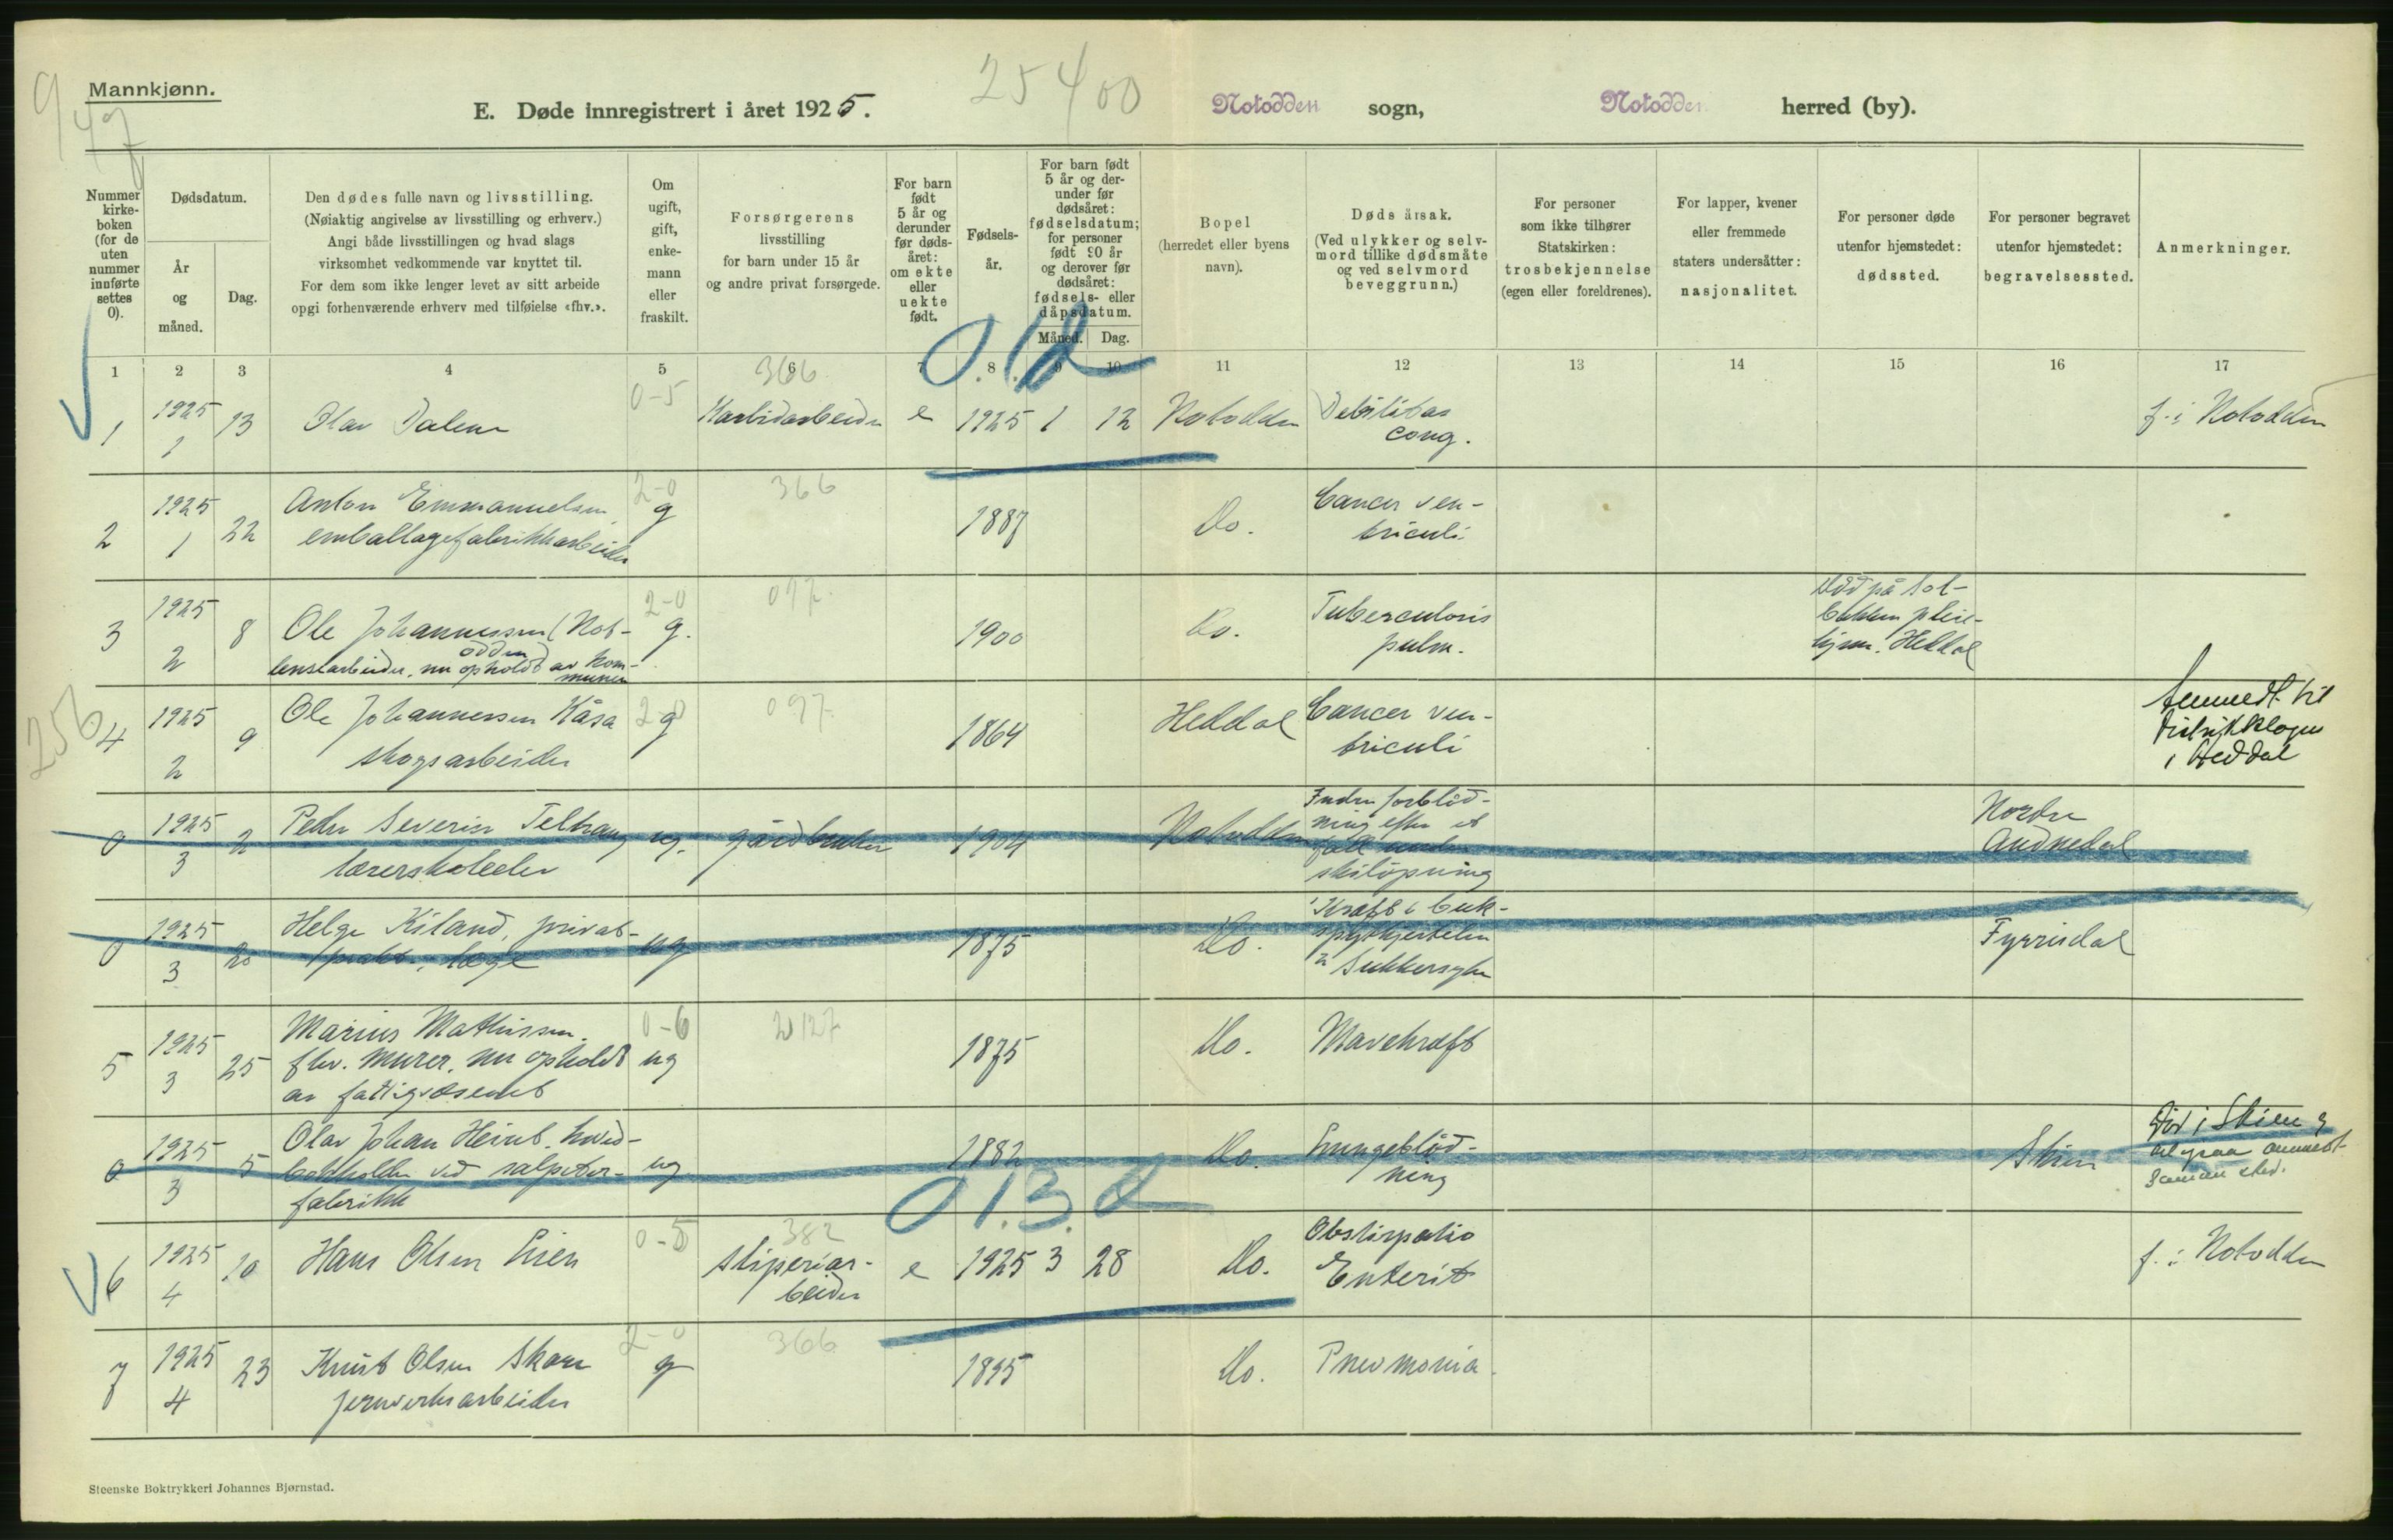 Mannkjønn.
E. Døde innregistrert i året 1925.
25400
Notodden sogn,
Notodden herred (by).
Nummer kirke-boken (for de uten nummer innførte settes 0).
Dødsdatum.
År og måned.
Dag.
Den dødes fulle navn og livsstilling.
(Nøiaktig angivelse av livsstilling og erhverv.)
Angi både livsstillingen og hvad slags
virksomhet vedkommende var knyttet til.
For dem som ikke lenger levet av sitt arbeide
opgi forhenværende erhverv med tilføielse «fhv.».
Om ugift, gift, enke-mann eller fraskilt.
Forsørgerens
livsstilling
for barn under 15 år
og andre privat forsørgede.
For barn født 5 år og derunder før døds-året: om ekte eller uekte født.
Fødsels-år.
For barn født 5 år og der-under før dødsåret: fødselsdatum; for personer født 90 år og derover før dødsåret: fødsels- eller dåpsdatum.
Måned.
Dag.
Bopel
(herredet eller byens
navn).
Dødsårsak.
(Ved ulykker og selv-
mord tillike dødsmåte
og ved selvmord
beveggrunn.)
For personer
som ikke tilhører
Statskirken:
trosbekjennelse
(egen eller foreldrenes).
For lapper, kvener
eller fremmede
staters undersåtter:
nasjonalitet.
For personer døde
utenfor hjemstedet:
dødssted.
For personer begravet
utenfor hjemstedet:
begravelsessted.
Anmerkninger.
1 2 3 4 5 6 7 8 9 10 11 12 13 14 15 16 17
0-5 366
1 1925 1 13 Olav Dalene Karbidarbeider e 1925 1 12 Notodden Debilitas cong. f. i Notodden
2-0 366
2 1925 1 22 Anton Emmanuelsen g 1887 Do. Cancer ven-
emballagefabrikkarbeider triculi
2-0 097
3 1925 2 8 Ole Johannessen (Not- g. 1900 Do. Tuberculosis Död på Sol-
odden) pulm. bakken pleie-
lensearbeider, nu opholdt av kom- hjem. Heddal
munen
256
2-0 097
4 1925 2 9 Ole Johannessen Kåsa g 1864 Heddal Cancer ven- Anmeldt til
skogsarbeider triculi Distriktslegen
i Heddal
0 1925 3 2 Peder Severin ug. gårdbruker 1904 Notodden Indre forblöd- Nordre
lærerskoleelev ning efter et Audnedal
fall under
skilöpning
0 1925 3 20 Helge Kiland, privat- ug 1875 Do. Kræft i buk- Fyrrisdal
prakt. læge spyttkjertelen
Sukkersyke
0-6 127
5 1925 3 25 Marius Mathisen ug 1875 Do. Mavekræft
fhv. murer, nu opholdt
av fattigvæsenet
0 1925 3 5 Olav Johan ug 1882 Do. Lungeblöd- Skien Död i Skien
bokholder ved salpeter- ning anmeldt
fabrikk samme sted.
0-5 382
6 1925 4 10 Hans Olsen Lien sliperiar- e 1925 3 28 Do. Obstipatio f. i Notodden
beider Enterit
2-0 366
7 1925 4 23 Knut Olsen g 1895 Do. Pneumonia
jernverksarbeider
Steenske Boktrykkeri Johannes Bjørnstad.